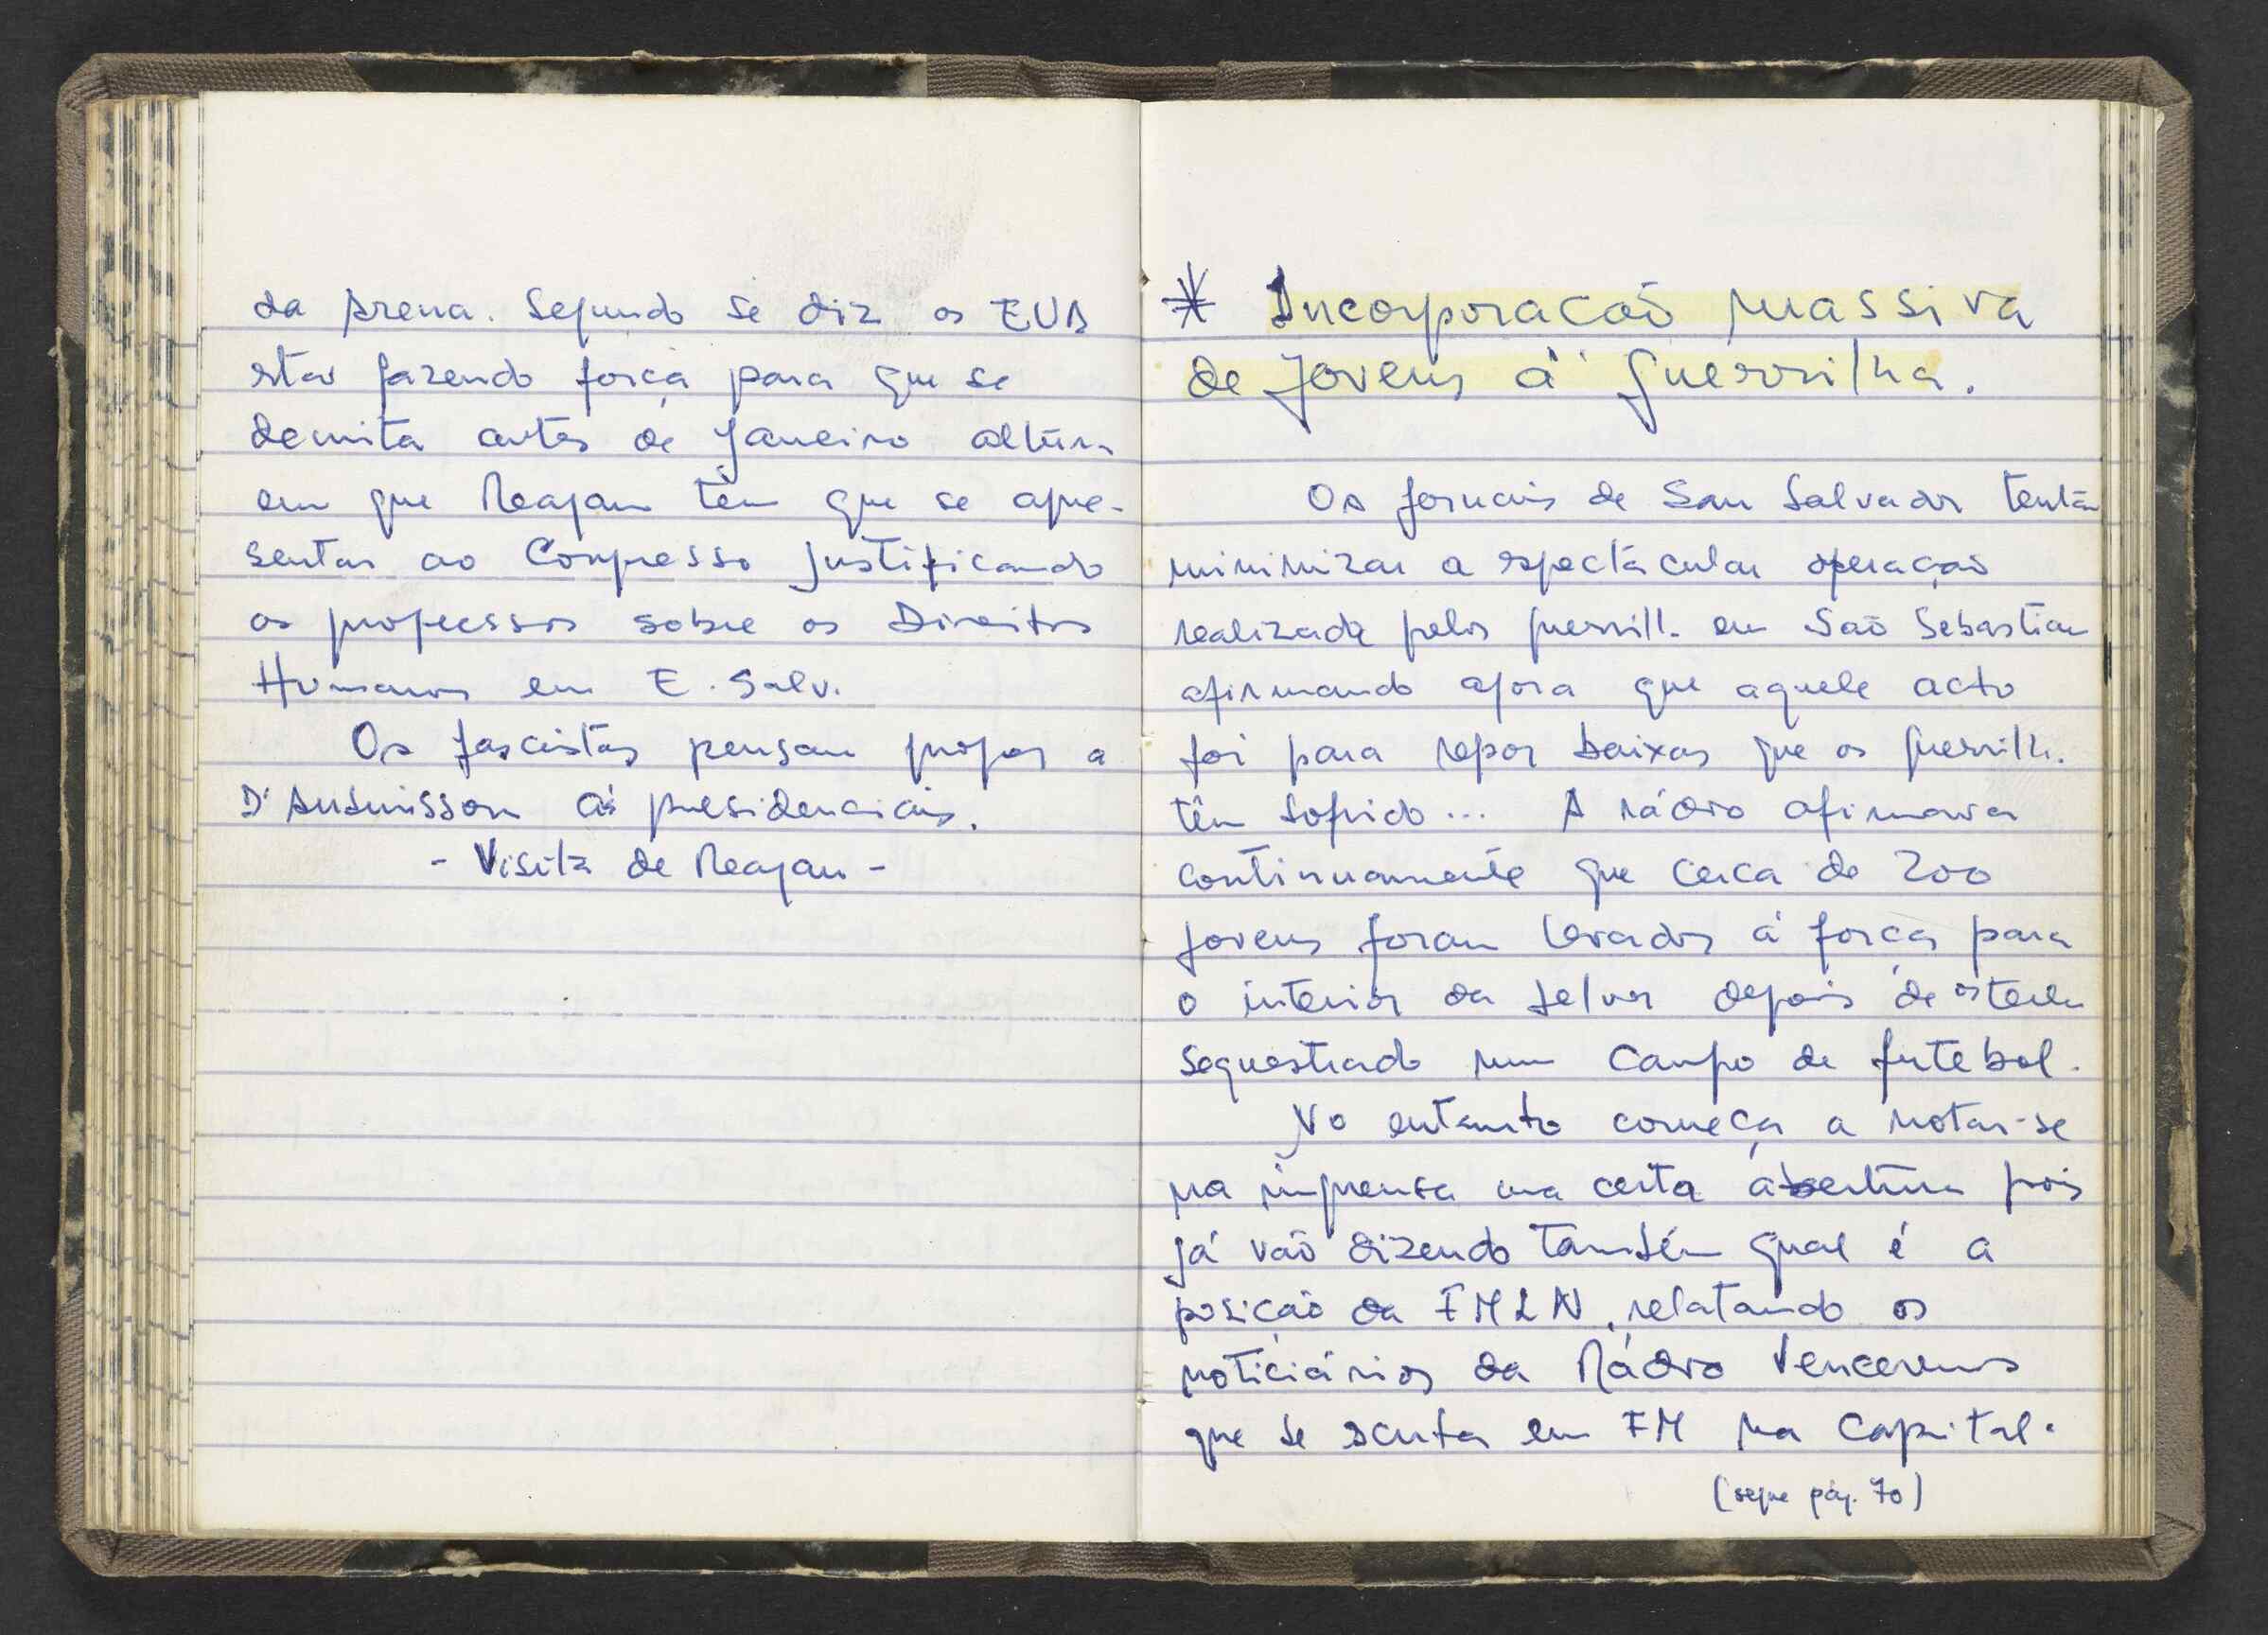 da Arena. Segundo se diz os EUA
estão fazendo força para que se
demita antes de Janeiro altura
em que Reagan têm que se apre-
sentar ao Congresso justificando
os progressos sobre os Direitos
Humanos em E. Salv.
Os fascistas pensam propor a
D'Aubuisson às presidenciais.
- Visita de Reagan -
* Incorporação massiva
de Jovens à guerrilha.
Os jornais de San Salvador tentam
minimizar a espectácular operação
realizada pelos guerrill. em São Sebastian
afirmando agora que aquele acto
foi para repor baixas que os guerrilh.
têm sofrido... A rádio afirmava
continuamente que cerca de 200
jovens foram levados à força para
o interior da selva depois de os terem
sequestrado num campo de futebol.
No entanto começa a notar-se
na imprensa uma certa abertura pois
já vão dizendo também qual é a
posição da FMLN, relatando os
noticiários da Rádio Venceremos
que se escuta em FM na Capital.
(segue pág. 70)